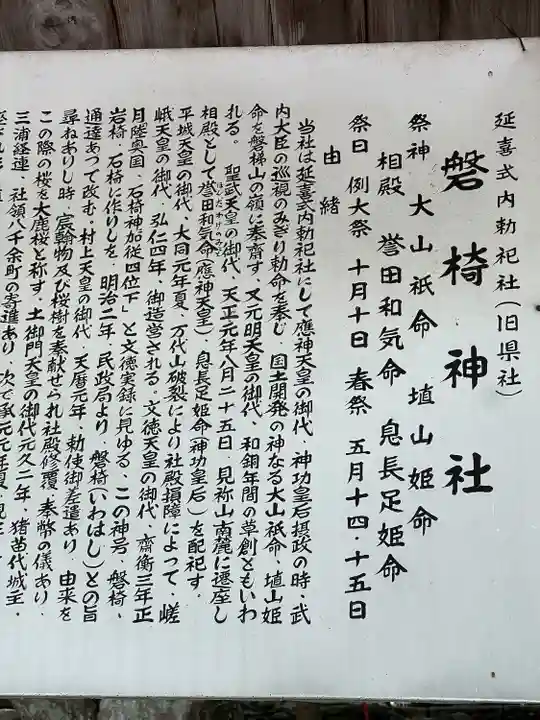 延喜式内勅祀社(旧県社)
磐椅神社
祭神 大山祇命 埴山姫命
相殿 誉田和気命 息長足姫命
祭日 例大祭 十月十日 春祭 五月十四・十五日
由緒
当社は延喜式内勅祀社にして應神天皇の御代、神功皇后摂政の時、武
内大臣の巡視のみぎり勅命を奉じ、国土開発の神なる大山祇命、埴山姫
命を磐梯山の領に奉齋す。又元明天皇の御代、和銅年間の草創ともいわ
れる。 聖武天皇の御代、天正元年八月二十五日、見祢山南麓に遷座し
相殿として誉田和気命(應神天皇)、息長足姫命(神功皇后)を配祀す。
ほんだわけのみこと
平城天皇の御代、大同元年夏、万代山破裂により社殿損障によって、嵯
峨天皇の御代、弘仁四年、御造営される。文徳天皇の御代、齋衡三年正
月陸奥国、石椅神加従四位下」と文徳実録に見ゆる、この神号、磐椅、
岩椅、石椅に作りしを、明治二年、民政局より、磐椅(いわはし)との旨
通達あつて改む。村上天皇の御代 天暦元年、勅使御差遣あり、由来を
尋ねありし時、宸翰物及び桜樹を奉献せられ社殿修覆、奉幣の儀あり、
この際の桜を大鹿桜と称す。土御門天皇の御代元久二年、猪苗代城主、
三浦経連、社領八千余町の寄進あり、次で承元元年夏、